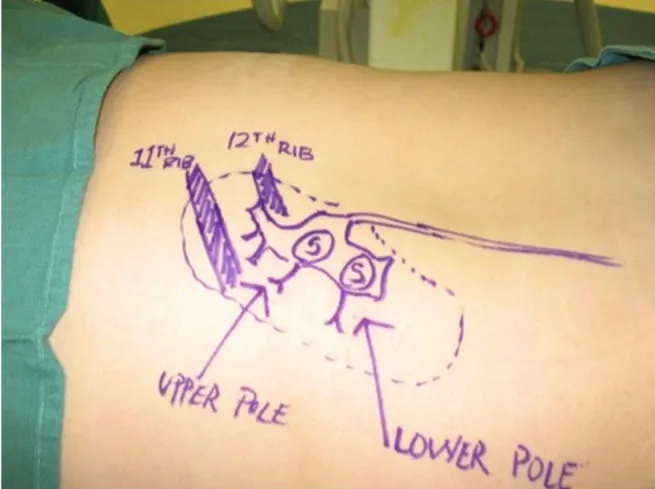 11TH RIB
12TH RIB
S
S
UPPER POLE
LOWER POLE